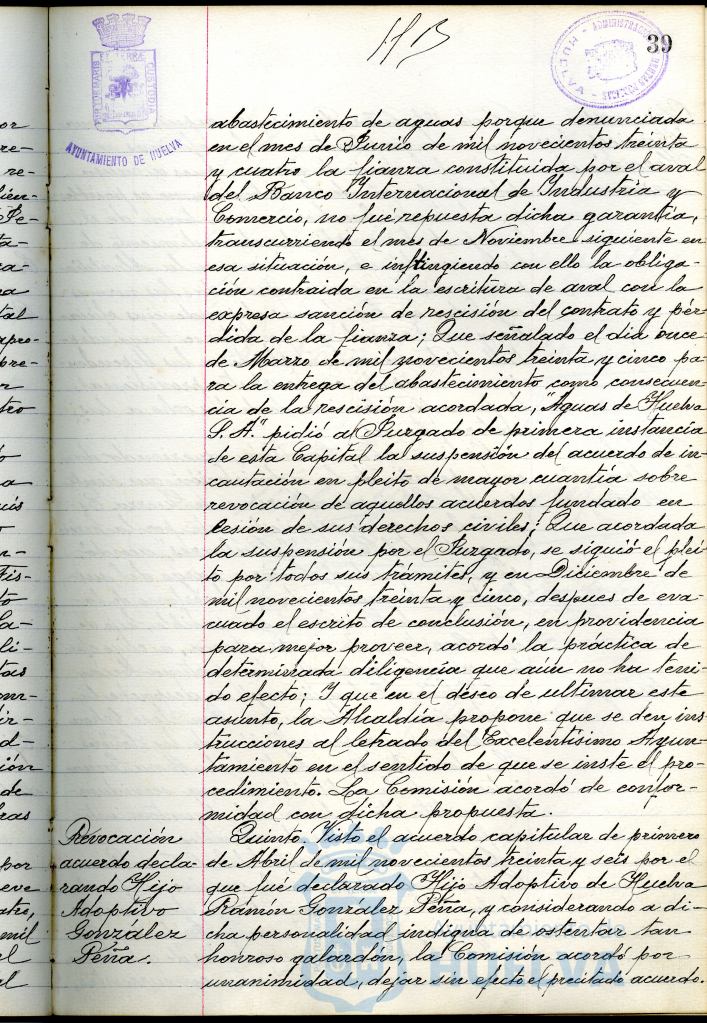 39
AYUNTAMIENTO DE HUELVA
HUELVA
abastecimiento de aguas porque denunciada
en el mes de Junio de mil novecientos treinta
y cuatro la fianza constituida por el aval
del Banco Internacional de Industria y
Comercio, no fué repuesta dicha garantía,
transcurriendo el mes de Noviembre siguiente en
esa situación, e infringiendo con ello la obliga-
ción contraida en la escritura de aval con la
expresa sanción de rescisión del contrato y pér-
dida de la fianza; Que señalado el dia once
de Marzo de mil novecientos treinta y cinco pa-
ra la entrega del abastecimiento como consecuen-
cia de la rescisión acordada, "Aguas de Huelva
S. A." pidió al Juzgado de primera instancia
de esta Capital la suspensión del acuerdo de in-
cautación en pleito de mayor cuantía sobre
revocación de aquellos acuerdos fundado en
lesión de sus derechos civiles; Que acordada
la suspensión por el Juzgado, se siguió el plei-
to por todos sus trámites, y en Diciembre de
mil novecientos treinta y cinco, despues de eva-
cuado el escrito de conclusión, en providencia
para mejor proveer, acordó la práctica de
determinada diligencia que aún no ha teni-
do efecto; Y que en el deseo de ultimar este
asunto, la Alcaldía propone que se den ins-
trucciones al letrado del Excelentísimo Ayun-
tamiento en el sentido de que se inste el pro-
cedimiento. La Comisión acordó de confor-
midad con dicha propuesta.
Revocación
acuerdo decla-
rando Hijo
Adoptivo
González
Peña.
Quinto. Visto el acuerdo capitular de primero
de Abril de mil novecientos treinta y seis por el
que fué declarado Hijo Adoptivo de Huelva
Ramón González Peña, y considerando a di-
cha personalidad indigna de ostentar tan
honroso galardón, la Comisión acordó por
unanimidad, dejar sin efecto el precitado acuerdo.
HUELVA